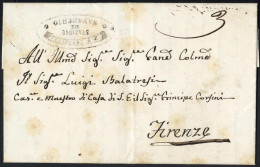 All' Illmo Sigre Sigre Pand Colmo
Il Sigr Luigi Balatresi
Casre e Maestro di Casa di S. E. il Sigr Principe Corsini
Firenze